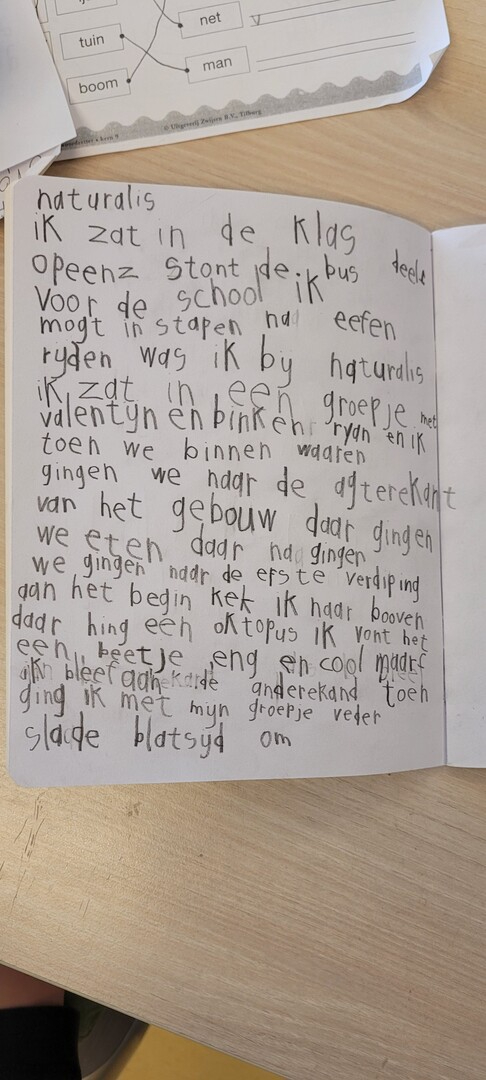 net
tuin
man
boom
© Uitgeverij Zwijsen B.V., Tilburg
naturalis
ik zat in de klas
opeenz stont de bus deele
voor de school ik
mogt in stapen na eefen
ryden was ik by naturalis
ik zat in een groepje met
valentyn en binken ryan en ik
toen we binnen waaren
gingen we naar de agterekant
van het gebouw daar gingen
we eten daar na gingen
we gingen naar de efste verdiping
aan het begin kek ik naar booven
daar hing een oktopus ik vont het
een beetje eng en cool maar
ik bleef aan anderekand toen
ging ik met myn groepje veder
slaade blatsyd om